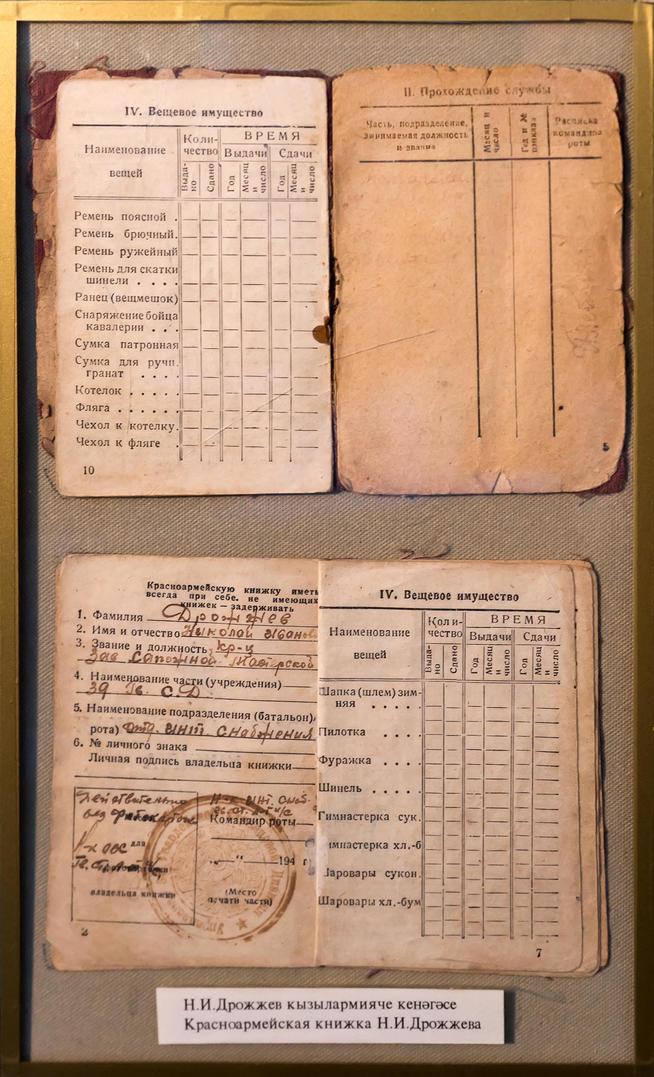 IV. Вещевое имущество
Наименование
вещей
Коли-
чество
ВРЕМЯ
Выдачи
Сдачи
Выда-
но
Сдано
Год
Месяц
и
число
Год
Месяц
и
число
Ремень поясной .
Ремень брючный.
Ремень ружейный
Ремень для скатки
шинели . . . .
Ранец (вещмешок)
Снаряжение бойца
кавалерии . . .
Сумка патронная
Сумка для ручн.
гранат . . . .
Котелок . . . . .
Фляга . . . . . .
Чехол к котелку.
Чехол к фляге .
10
II. Прохождение службы
Часть, подразделение,
занимаемая должность
и звание
Месяц и
число
Год и №
приказа
Расписка
командира
роты
5
Красноармейскую книжку иметь
всегда при себе. не имеющих
книжек — задерживать
1. Фамилия Дрожжев
2. Имя и отчество Николай Иванов
3. Звание и должность кр-ц
Зав Сапожной Мастерской
4. Наименование части (учреждения)
39 Гв. С.Д.
5. Наименование подразделения (батальон,
рота) отд. инт снабжения
6. № личного знака
Личная подпись владельца книжки
Действительно
без
владельца книжки
Командир роты
„ “ 194 г
(Место
печати части)
2
IV. Вещевое имущество
Наименование
вещей
Коли-
чество
ВРЕМЯ
Выдачи
Сдачи
Выда-
но
Сдано
Год
Месяц
и
число
Год
Месяц
и
число
Шапка (шлем) зим-
няя . . . .
Пилотка . . . .
Фуражка . . . .
Шинель . . . . .
Гимнастерка сук.
имнастерка хл.-б
Шаровары сукон.
Шаровары хл.-бум
7
Н.И.Дрожжев кызылармияче кенәгәсе
Красноармейская книжка Н.И.Дрожжева